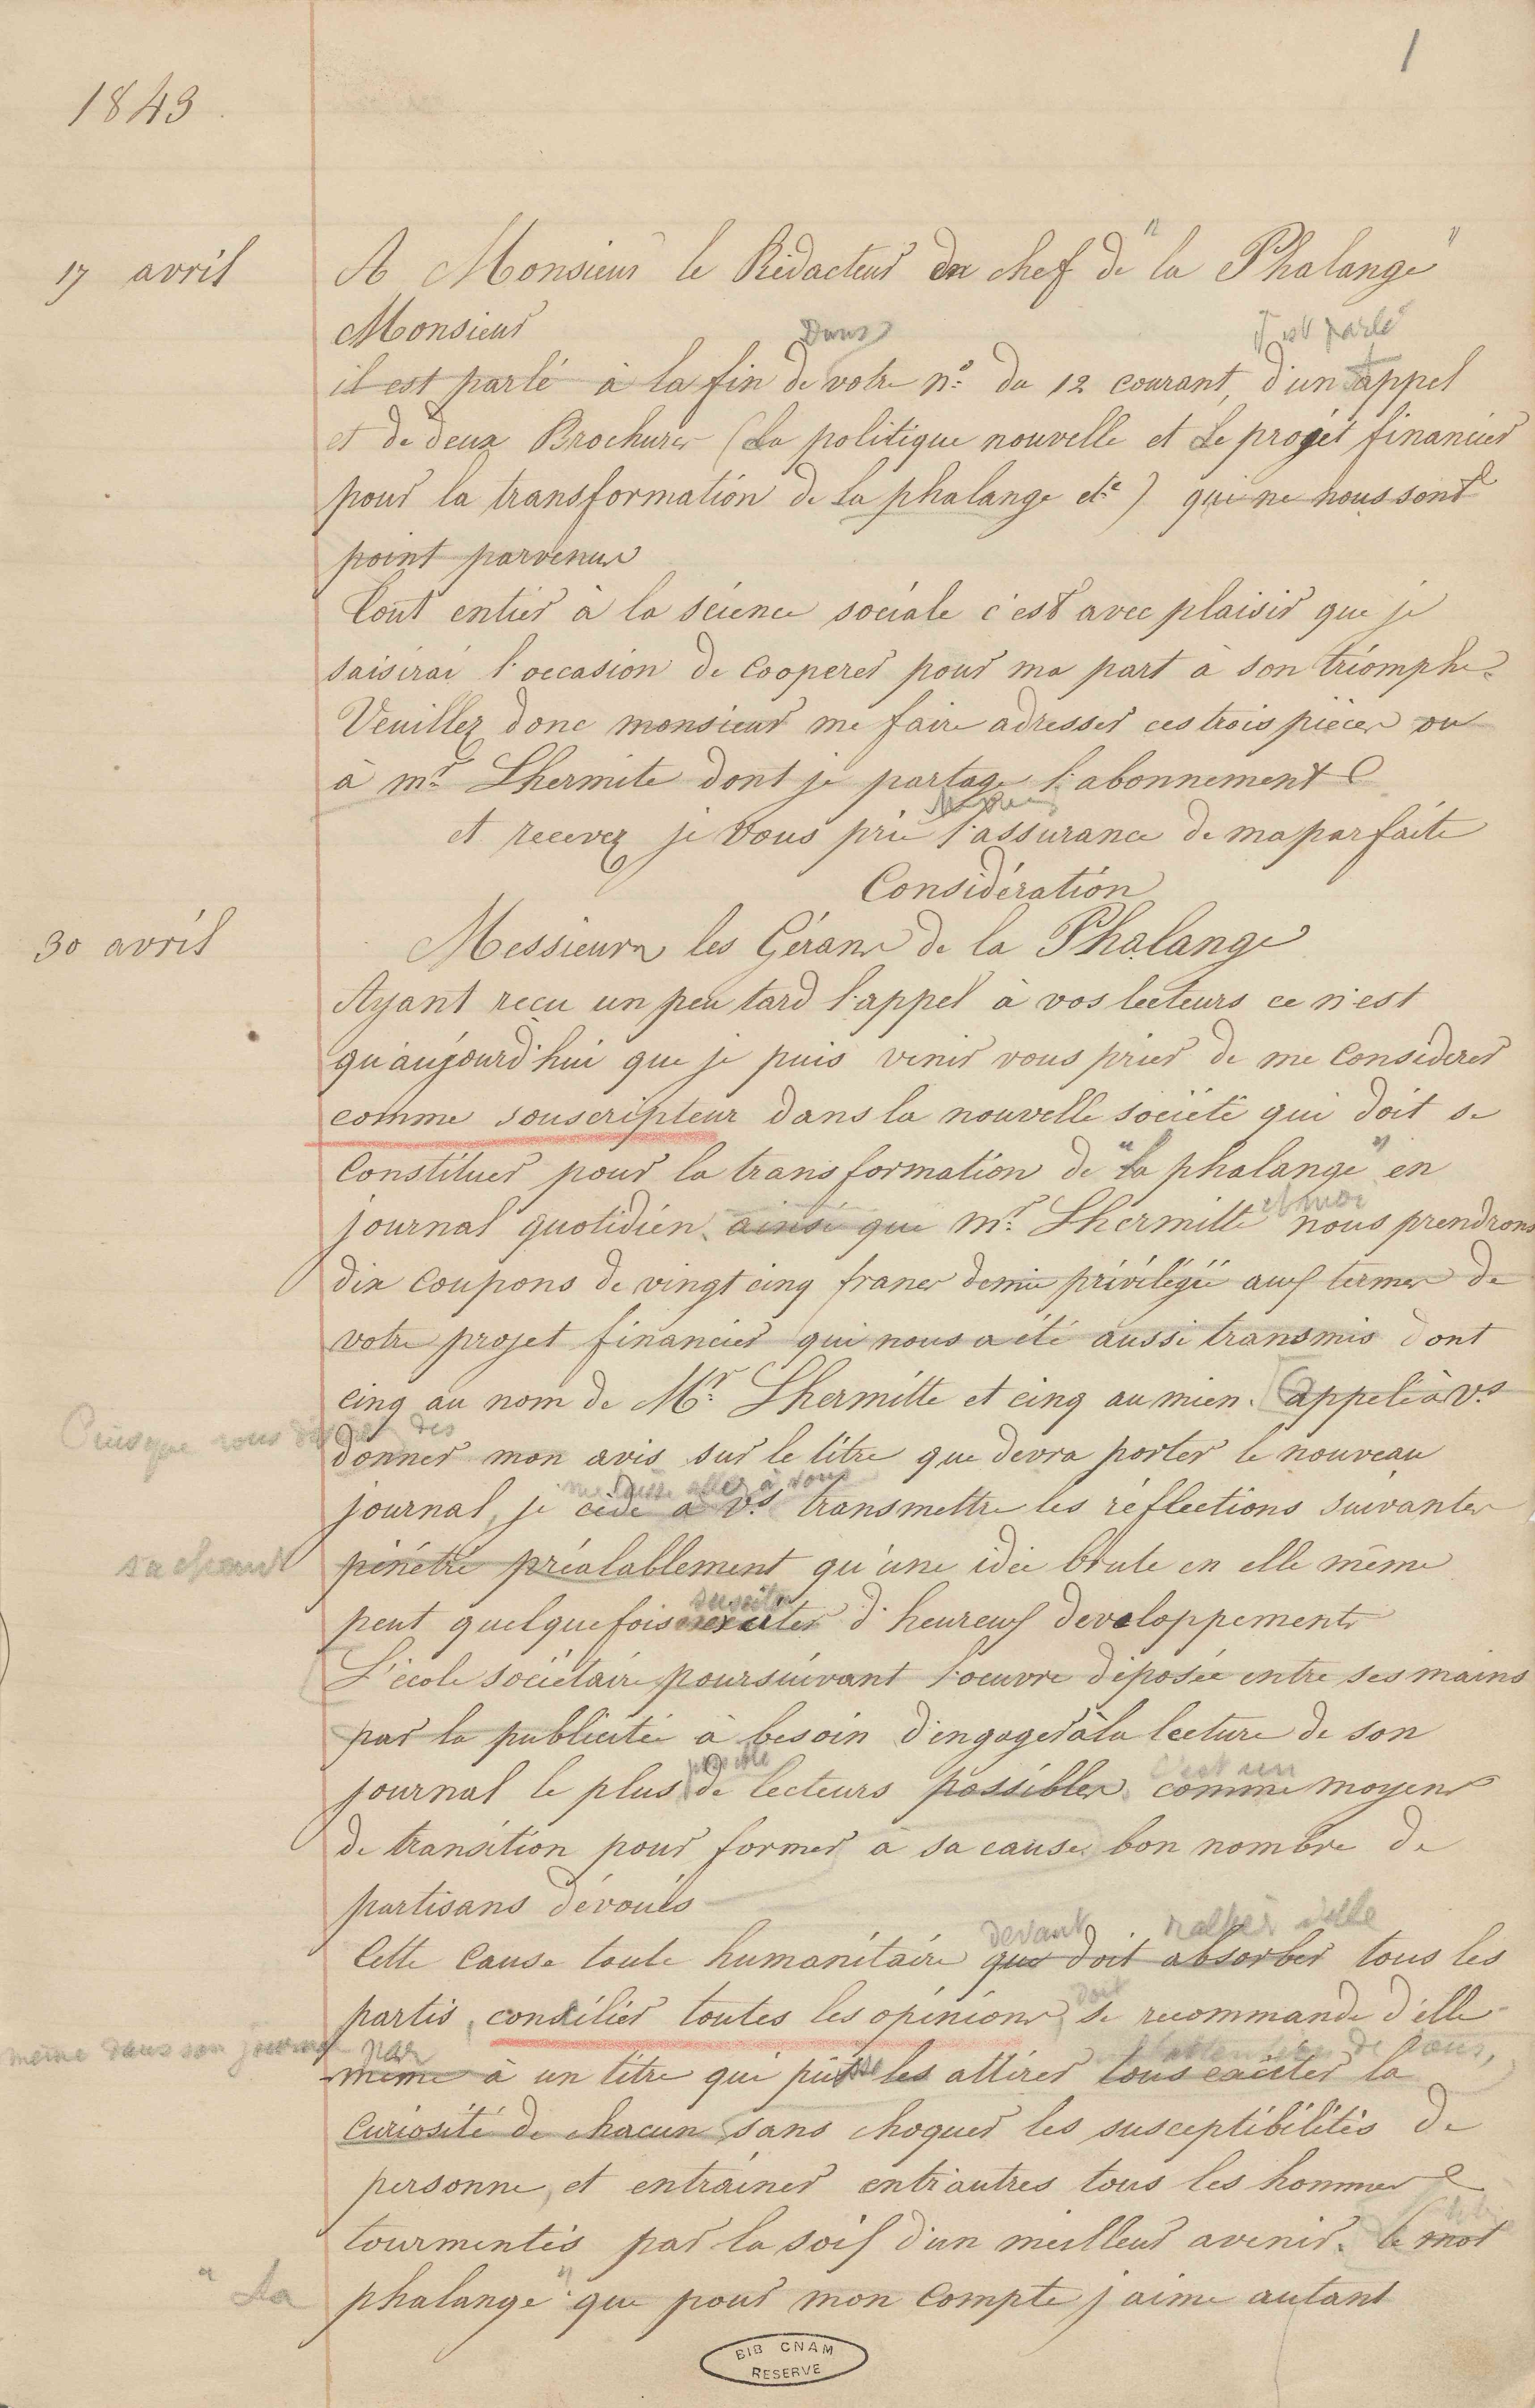 1
1843
17 avril
A Monsieur le Rédacteur en chef de "la Phalange"
Monsieur
Dans
il est parlé
il est parlé à la fin de votre n° du 12 courant, d'un appel
et de deux Brochures (La politique nouvelle et Le projet financier
pour la transformation de La phalange etc) qui ne nous sont
point parvenus
Tout entier à la science sociale c'est avec plaisir que je
saisirai l'occasion de Cooperer pour ma part à son triomphe.
Veuillez donc monsieur me faire adresser ces trois pièces ou
à mr Lhermite dont je partage l'abonnement
et recevez je vous prie l'assurance de ma parfaite
Considération
30 avril
Messieurs les Gérans de la Phalange
Ayant reçu un peu tard l'appel à vos lecteurs ce n'est
qu'aujourd'hui que je puis venir vous prier de me Considerer
comme souscripteur dans la nouvelle société qui doit se
Constituer pour la transformation de "la phalange" en
et moi
journal quotidien. ainsi que mr Lhermitte nous prendrons
dix Coupons de vingt cinq francs demie privilégié aux termes de
votre projet financier qui nous a été aussi transmis dont
cinq au nom de Mr Lhermitte et cinq au mien. appelé à vs
Puisque vous désirez des
donner mon avis sur le titre que devra porter le nouveau
me laisse aller à vous
journal, je cède à vs transmettre les réflections suivantes
sachant
pénétré préalablement qu'une idée brute en elle même
susciter
peut quelquefois exciter d'heureux developpements
L'école sociétaire poursuivant l'oeuvre déposée entre ses mains
par la publicitée à besoin d'engager à la lecture de son
possible
c'est un
journal le plus de lecteurs possibles comme moyens
de transition pour former à sa cause bon nombre de
partisans dévoués
devant
rallier à elle
Cette Cause toute humanitaire que doit absorber tous les
doit
partis, concilier toutes les opinions, se recommande d'elle
même dans son journal par
l'attention de tous,
même à un titre qui put les attirer tous exciter la
Curiosité de chacun sans choquer les susceptibilités de
personne, et entrainer entr'autres tous les hommes
tourmentés par la soif d'un meilleur avenir. le mot
"La
phalange" que pour mon Compte j'aime autant
BIB CNAM
RESERVE